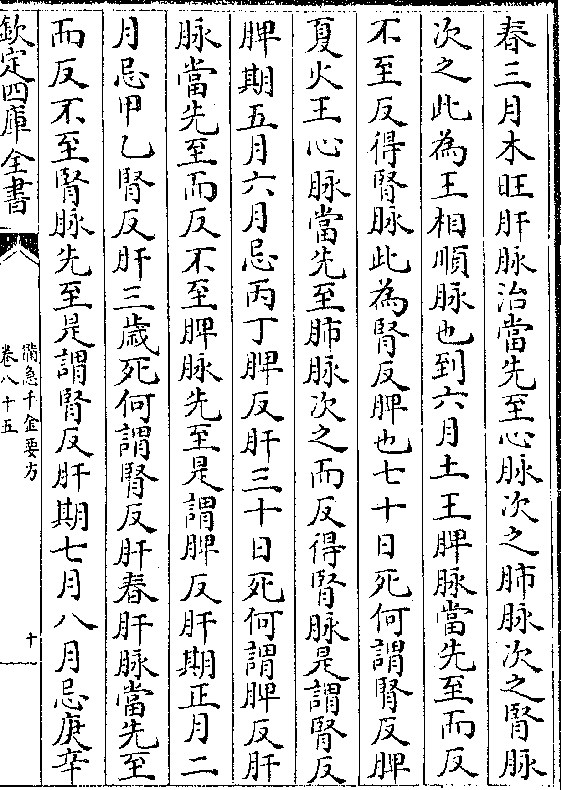 春三月木旺肝脉治當先至心脉次之肺脉次之腎脉
次之此為王相順脉也到六月土王脾脉當先至而反
不至反得腎脉此為腎反脾也七十日死何謂腎反脾
夏火王心脉當先至肺脉次之而反得腎脉是謂腎反
脾期五月六月忌丙丁脾反肝三十日死何謂脾反肝
脉當先至而反不至脾脉先至是謂脾反肝期正月二
月忌甲乙腎反肝三歲死何謂腎反肝春肝脉當先至
而反不至腎脉先至是謂腎反肝期七月八月忌庚辛
欽定四庫全書
備急千金要方
卷八十五
十